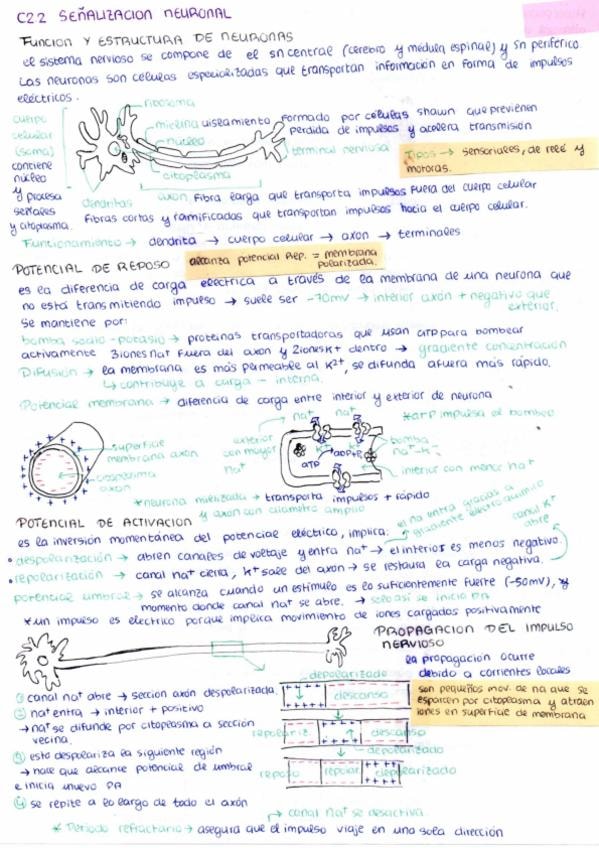 C2.2 SEÑALIZACION NEURONAL
FUNCION Y ESTRUCTURA DE NEURONAS
el sistema nervioso se compone de el sn central (cerebro y medula espinal) y sn periferico
Las neuronas son celulas especializadas que transportan información en forma de impulsos
eléctricos.
cuerpo
celular
(soma)
contiene
núcleo
y procesa
señales
y citoplasma.
ribosoma
mielina aislamiento formado por células shawn que previenen
perdida de impulsos y acelera transmisión
núcleo
terminal nerviosa
citoplasma
Tipos → sensoriales, de relé y
motoras.
dendritas
axon Fibra larga que transporta impulsos fuera del cuerpo celular
Fibras cortas y ramificadas que transportan impulsos hacia el cuerpo celular.
Funcionamiento → dendrita → cuerpo celular → axon → terminales
POTENCIAL DE REPOSO
alcanza potencial Rep. = membrana
polarizada.
es la diferencia de carga electrica a través de la membrana de una neurona que
no está transmitiendo impulso → suele ser -70mv → interior axon + negativo que
exterior.
se mantiene por:
bomba sodio-potasio → proteinas transportadoras que usan ATP para bombear
activamente 3 iones Na+ fuera del axon y 2 iones K+ dentro → gradiente concentración
Difusión → la membrana es más permeable al K2+, se difunda afuera más rápido.
↳ contribuye a carga - interna.
Potencial membrana → diferencia de carga entre interior y exterior de neurona
superficie
membrana axón
axon
exterior
con mayor
Na+
na+ na+
K+ K+
ATP
ADP+P
*ATP impulsa el bombeo
bomba
na+-K+
interior con menor Na+
*neurona mielizada → transporta impulsos + rápido
y axon con diametro amplio
POTENCIAL DE ACTIVACION
es la inversión momentánea del potencial eléctrico, implica:
no entra gracias a
gradiente electroquimico
canal K+
abre
• despolarización → abren canales de voltaje y entra Na+ → el interior es menos negativo.
• repolarización → canal na+ cierra, K+ sale del axon → se restaura la carga negativa.
potencial umbral → se alcanza cuando un estímulo es lo suficientemente fuerte (-50mv), y
momento donde canal Na+ se abre. → solo así se inicia PA
*un impulso es electrico porque implica movimiento de iones cargados positivamente
PROPAGACION DEL IMPULSO
NERVIOSO
La propagación ocurre
debido a corrientes locales
son pequeños mov. de na que se
esparcen por citoplasma y atraen
iones en superficie de membrana
① canal na+ abre → seccion axón despolarizada.
② na+ entra → interior + positivo
→ na+ se difunde por citoplasma a sección
vecina.
③ esto despolariza la siguiente región
→ hace que alcance potencial de umbral
e inicia nuevo PA
④ se repite a lo largo de todo el axón
despolarizado
descanso
repolariz.
descanso
despolarizado
reposo
repolar.
despolarizado
↱ canal Na+ se desactiva
* Periodo refractario → asegura que el impulso viaje en una sola dirección